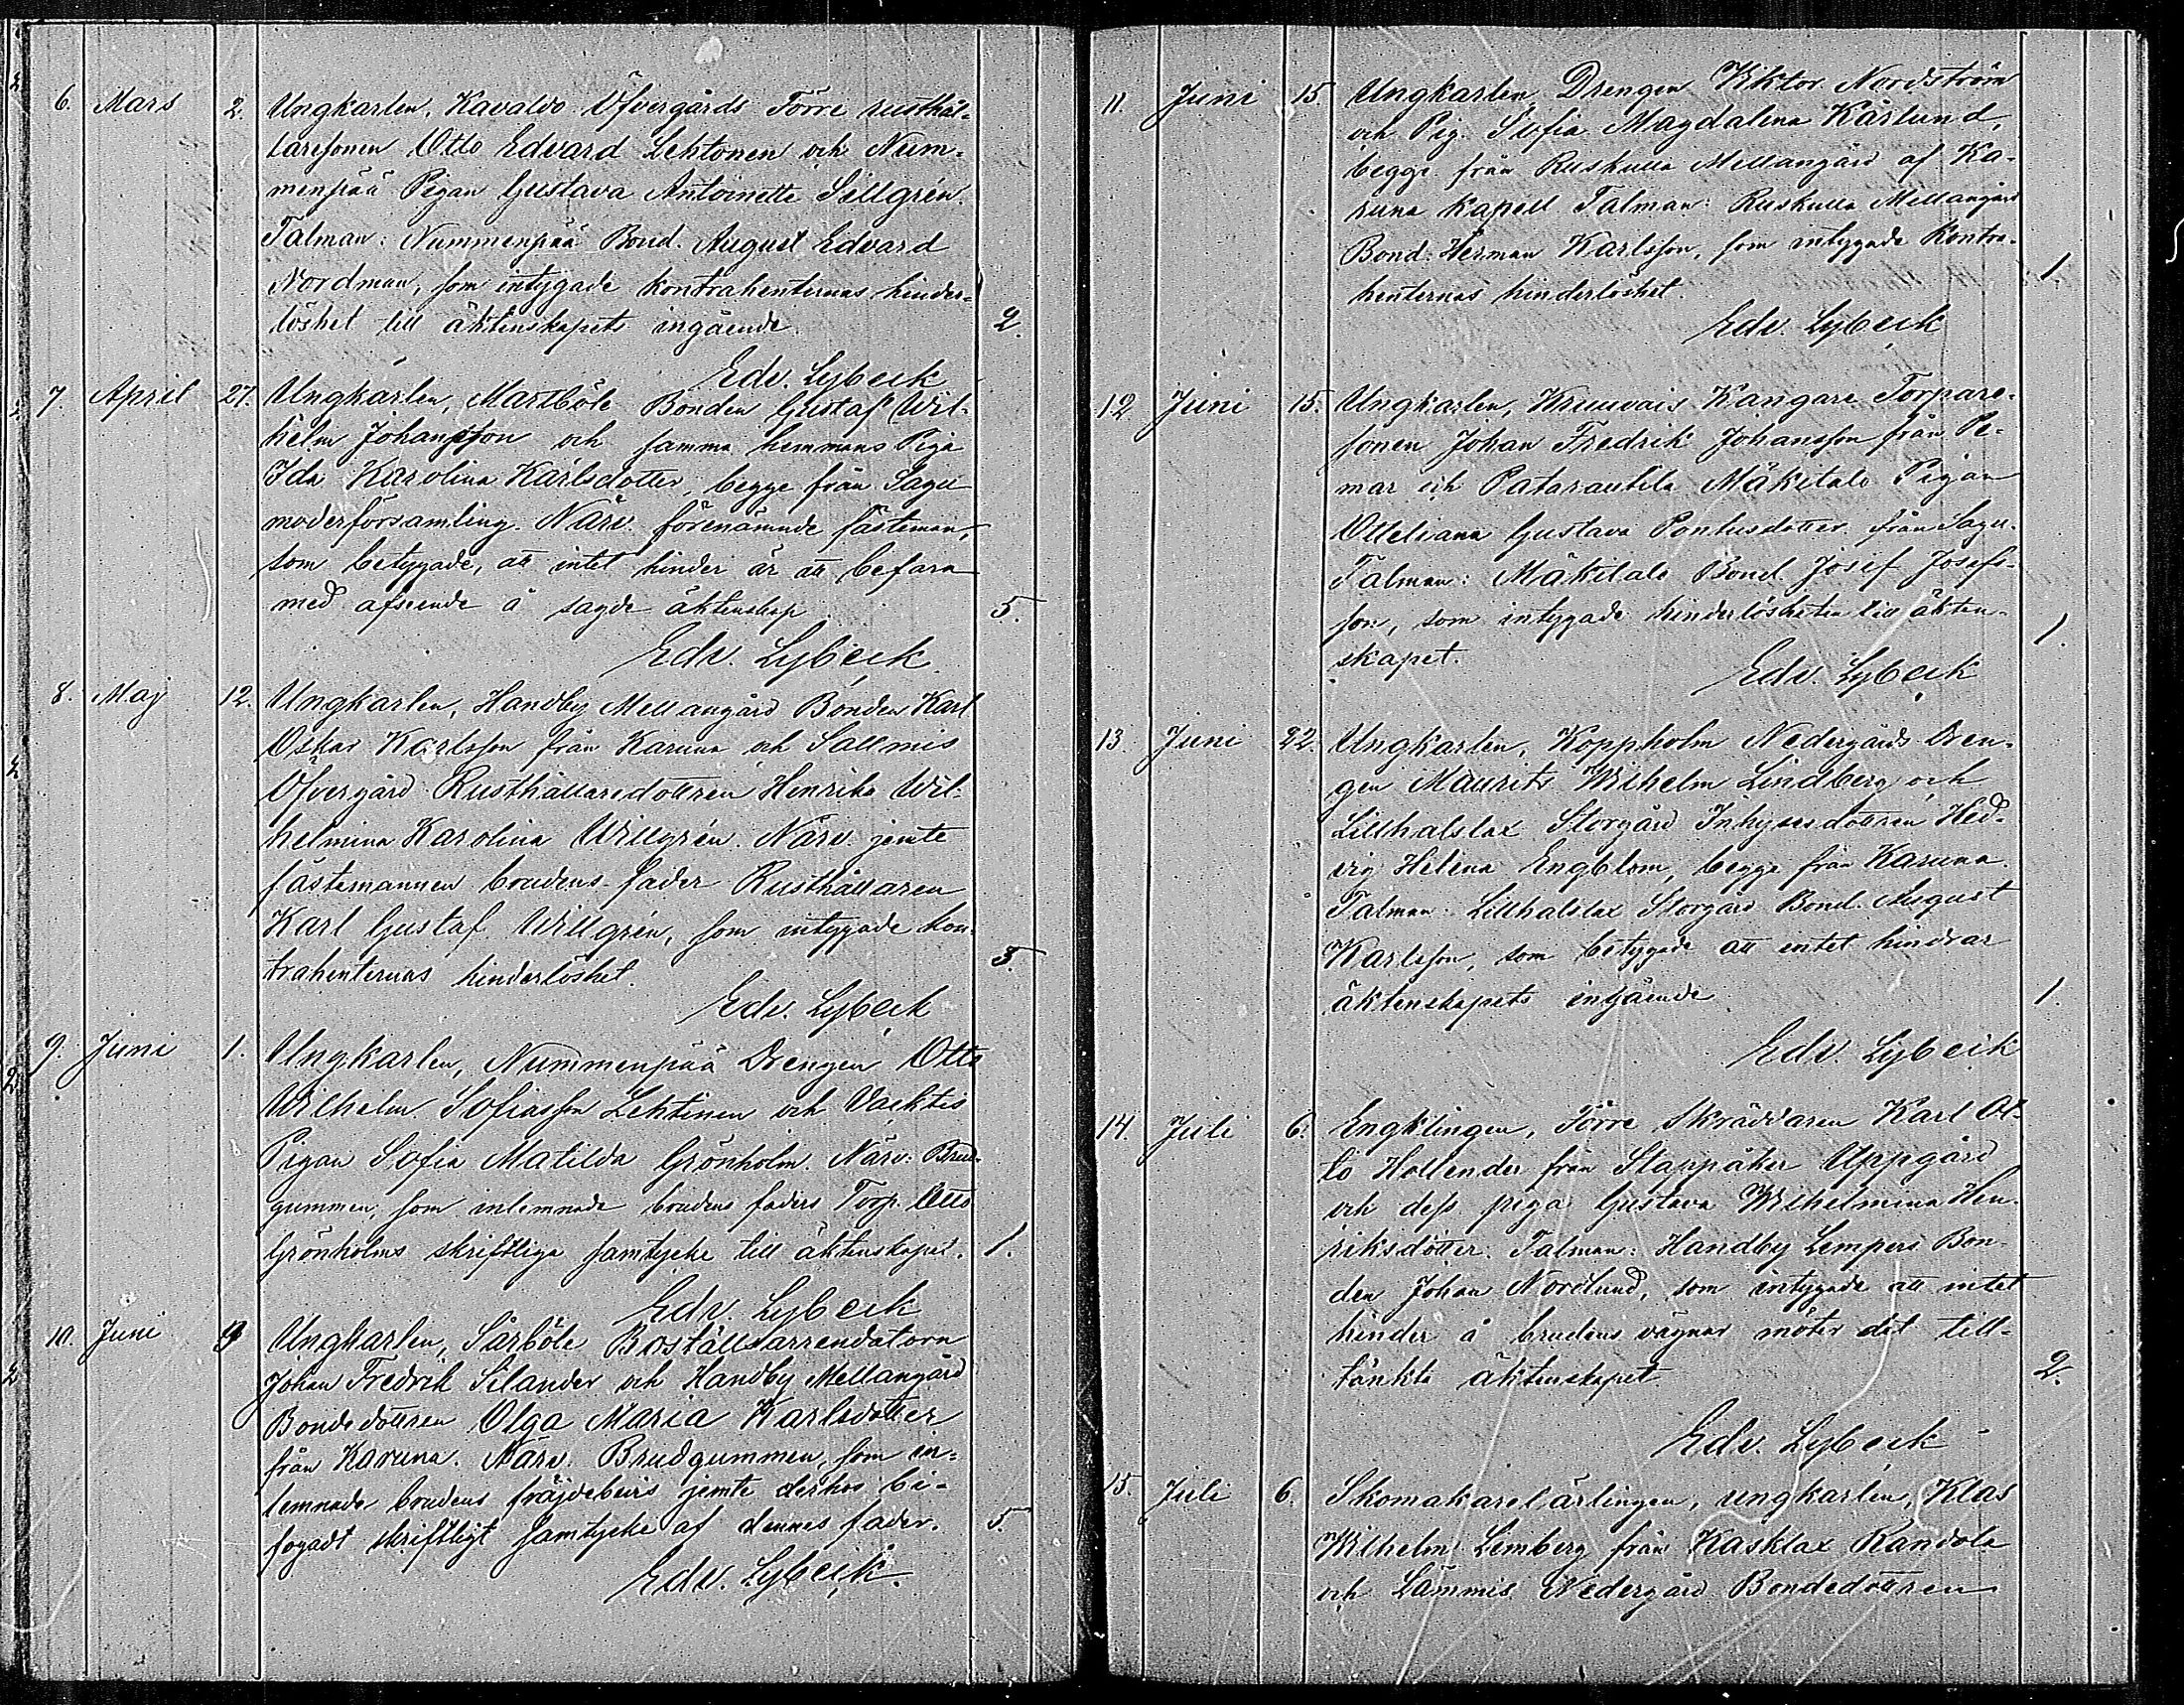 6. Mars 2. Ungkarlen, Kavaldo Öfvergårds Törre rusthål-
laresonen Otto Edvard Lehtonen och Num-
menpää Pigan Gustava Antoinette Sillgrén.
Talman: Nummenpää Bond. August Edvard
Nordman, som intygade kontrahenternas hinder-
löshet till äktenskapets ingående. 2.
Edv. Lybeck
7. April 27. Ungkarlen, Martböle Bonden Gustaf Wil-
helm Johansson och samma hemmans Piga
Ida Karolina Karlsdotter, begge från Sagu
moderförsamling. Närv. förenämnde fästeman,
som betygade, att intet hinder är att befara
med afseende å sagde äktenskap 5.
Edv. Lybeck.
8. Maj 12. Ungkarlen, Handby Mellangård Bonden Karl
Oskar Karlsson från Karuna och Sallmis
Öfvergård Rusthållaredottren Henrika Wil-
helmina Karolina Willgrén. Närv. jemte
fästemannen brudens fader Rusthållaren
Karl Gustaf Willgrén, som intygade kon-
trahenternas hinderlöshet. 5.
Edv. Lybeck
9. Juni 1. Ungkarlen, Nummenpää Drengen Otto
Wilhelm Sofiasson Lehtinen och
Pigan Sofia Matilda Grönholm. Närv: Brud-
gummen, som inlemnade brudens faders Torp. Otto
Grönholms skriftliga samtycke till äktenskapet. 1.
Edv. Lybeck
10. Juni 9 Ungkarlen, Sårböle Boställsarrendatorn
Johan Fredrik Silander och Handby Mellangård
Bondedottren Olga Maria Karlsdotter
från Karuna. Närv. Brudgummen, som in-
lemnade brudens fräjdebevis jemte derhos bi-
fogadt skriftligt samtycke af dennes fader. 5.
Edv. Lybeck.
11. Juni 15. Ungkarlen, Drengen Viktor Nordström
och Pig. Sofia Magdalena Kärlund,
begge från Ruskulla Mellangård af Ka-
runa Kapell. Talman: Ruskulla Mellangård
Bond. Herman Karlsson, som intygade Kontra-
henternas hinderlöshet. 1.
Edv. Lybeck
12. Juni 15. Ungkarlen, Kruuvais Kangare Torpare-
sonen Johan Fredrik Johansson från Pe-
mar och Patarautila Mäkitalo Pigan
Otteliana Gustava Pontusdotter från Sagu.
Talman: Mäkitalo Bond. Josef Josefs-
son, som intygade hinderlösheten till äkten-
skapet. 1.
Edv. Lybeck
13. Juni 22. Ungkarlen, Koppholm Nedergårds Dren-
gen Maurits Wilhelm Lindberg och
Lillhalslax Storgård Inhysesdottren Hed-
vig Helena Engblom, begge från Karuna.
Talman: Lillhalslax Storgård Bond. August
Karlsson, som betygade att intet hindrar
äktenskapets ingående 1.
Edv. Lybeck
14. Juli 6. Enklingen, Törre Skräddaren Karl Ot-
to Hollender från Stappåker Uppgård
och dess piga Gustava Wilhelmina Hen-
riksdotter. Talman: Handby Lempers Bon-
den Johan Nordlund, som intygade att intet
hinder å brudens vägnar möter det till-
tänkta äktenskapet 2.
Edv. Lybeck
15. Juli 6. Skomakarelärlingen, ungkarlen, Klas
Wilhelm Limberg från Kasklax Kandola
och Lämmis Nedergård Bondedottren